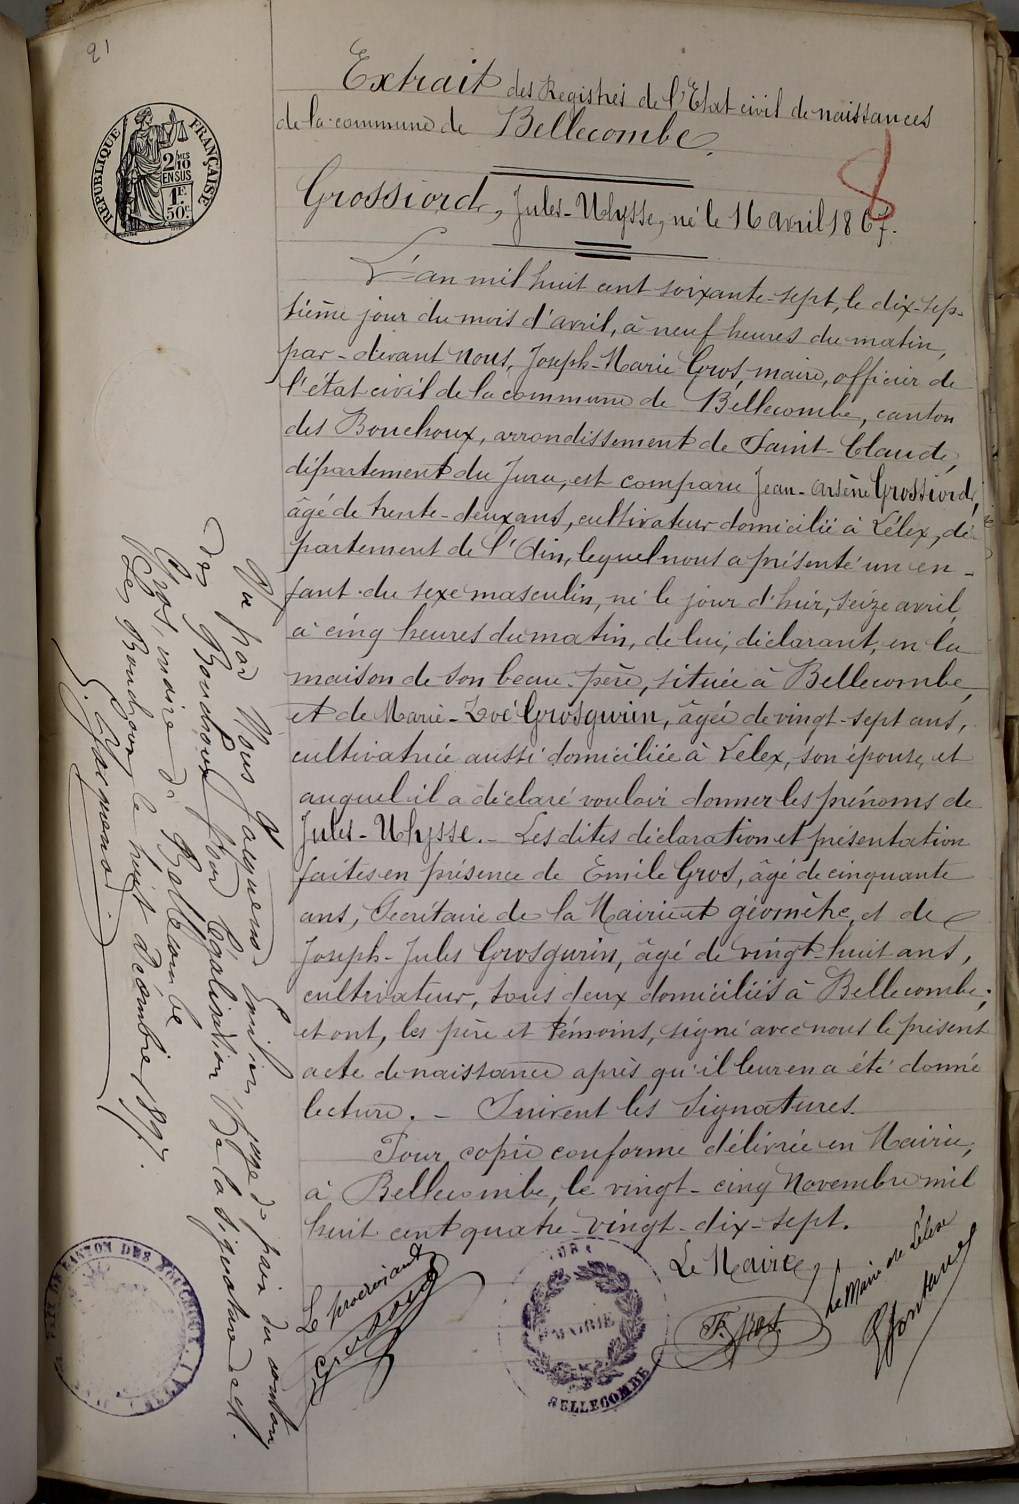 21
RÉPUBLIQUE FRANÇAISE
2/10
EN SUS
1F.
50c
8
Extrait des Registres de l'Etat civil de naissances
de la commune de Bellecombe.
Grossiord, Jules-Ulysse, né le 16 avril 1867.
L'an mil huit cent soixante-sept, le dix-sep-
tième jour du mois d'avril, à neuf heures du matin,
par-devant nous, Joseph-Marie Gros, maire, officier de
l'état civil de la commune de Bellecombe, canton
des Bouchoux, arrondissement de Saint-Claude,
département du Jura, est comparu Jean-Arsène Grossiord,
âgé de trente-deux ans, cultivateur domicilié à Lélex, dé-
partement de l'Ain, lequel nous a présenté un en-
fant du sexe masculin, né le jour d'hier, seize avril,
à cinq heures du matin, de lui, déclarant, en la
maison de son beau-père, située à Bellecombe,
et de Marie-Zoé Grosgurin, âgée de vingt-sept ans,
cultivatrice aussi domiciliée à Lélex, son épouse, et
auquel il a déclaré vouloir donner les prénoms de
Jules-Ulysse. - Les dites déclaration et présentation
faites en présence de Emile Gros, âgé de cinquante
ans, Secrétaire de la Mairie et géomètre, et de
Joseph-Jules Grosgurin, âgé de vingt-huit ans,
cultivateur, tous deux domiciliés à Bellecombe;
et ont, les père et témoins, signé avec nous le présent
acte de naissance après qu'il leur en a été donné
lecture. - Suivent les Signatures.
Pour copie conforme délivrée en Mairie,
à Bellecombe, le vingt-cinq Novembre mil
huit cent quatre-vingt-dix-sept.
Le Maire,
Le Maire de Lélex
F. Gros
MAIRIE
BELLECOMBE
Vu par Nous Jacquend Emilien juge de paix du canton
des Bouchoux pour légalisation de la signature de M.
Gros, maire de Bellecombe
Les Bouchoux le huit décembre 1897.
E. Jacquend
PAIX DU CANTON DES BOUCHOUX